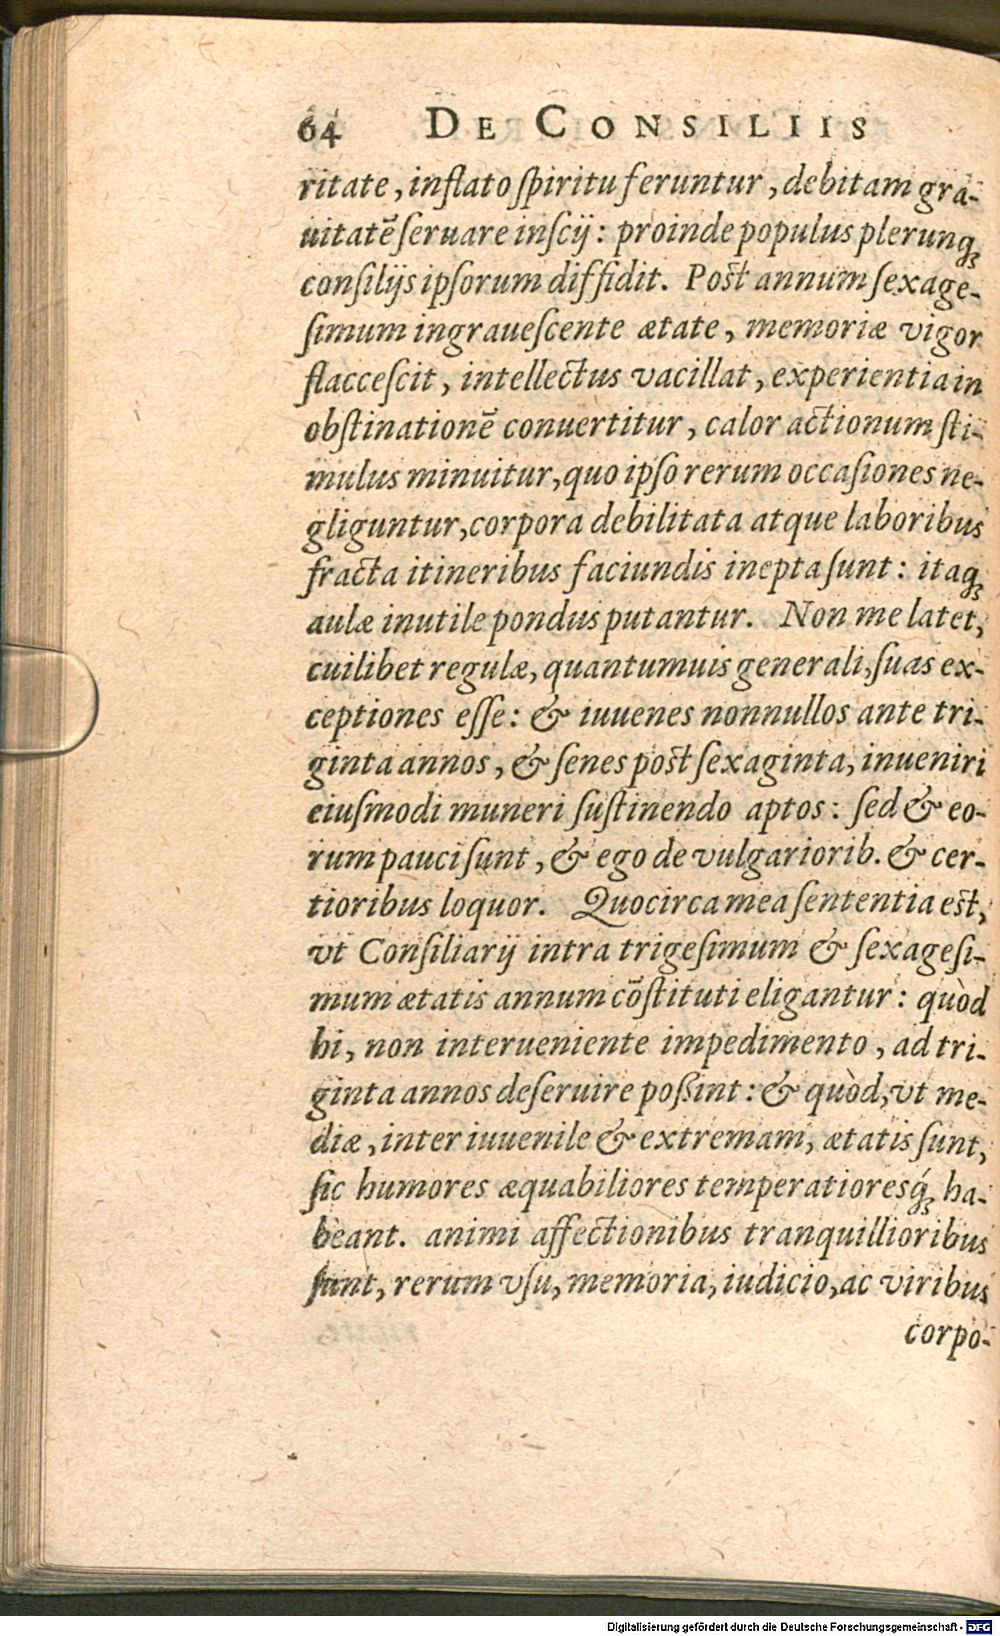 64 DE CONSILIIS
ritate, inflato ſpiritu feruntur, debitam gra-
uitatē ſeruare inſcij: proinde populus plerunq́;
conſilijs ipſorum diffidit. Poſt annum ſexage-
ſimum ingraueſcente ætate, memoriæ vigor
flacceſcit, intellectus vacillat, experientia in
obſtinationē conuertitur, calor actionum ſti-
mulus minuitur, quo ipſo rerum occaſiones ne-
gliguntur, corpora debilitata atque laboribus
fracta itineribus faciundis inepta ſunt: itaq;
aulæ inutile pondus putantur. Non me latet,
cuilibet regulæ, quantumuis generali, ſuas ex-
ceptiones eſſe: & iuuenes nonnullos ante tri-
ginta annos, & ſenes poſt ſexaginta, inueniri
eiuſmodi muneri ſuſtinendo aptos: ſed & eo-
rum pauci ſunt, & ego de vulgariorib. & cer-
tioribus loquor. Quocirca mea ſententia eſt,
vt Conſiliarij intra trigeſimum & ſexageſi-
mum ætatis annum cōſtituti eligantur: quòd
hi, non interueniente impedimento, ad tri-
ginta annos deſeruire poßint: & quòd, vt me-
diæ, inter iuuenile & extremam, ætatis ſunt,
ſic humores æquabiliores temperatioresq́; ha-
beant. animi affectionibus tranquillioribus
ſunt, rerum vſu, memoria, iudicio, ac viribus
corpo-
Digitalisierung gefördert durch die Deutsche Forschungsgemeinschaft - DFG